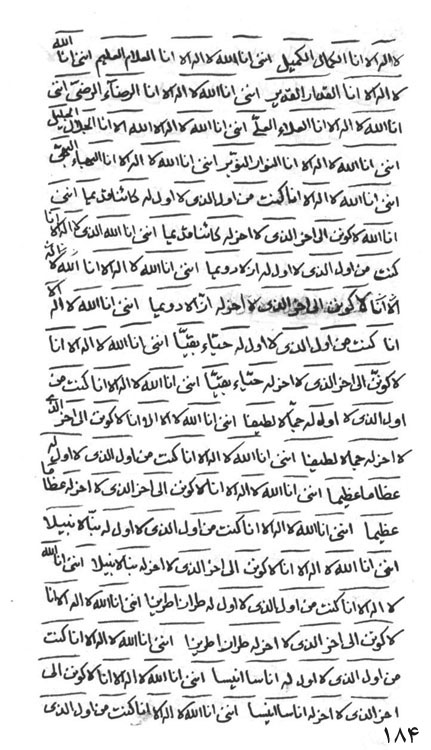 لا اله الا انا الكمال الكميل انني انا الله لا اله الا انا العلام العليم انني انا الله
لا اله الا انا القدار القدير انني انا الله لا اله الا انا الرضاء الرضي انني
انا الله لا اله الا انا العلاء العلي انني انا الله لا اله الا الله الا انا الجلال الجليل
انني انا الله لا اله الا انا النوار النوير انني انا الله لا اله الا انا البهاء البهي
انني انا الله لا اله الا انا كنت من اول الذي لا اول له انني
انا الله لاكونن الى اخر الذي لا اخر له انني انا الله الذي لا اله الا انا
كنت من اول الذي لا اول له انني انا الله لا اله الا انا الله لا اله
الا انا لاكونن الى اخر الذي لا اخر له انني انا الله لا اله الا
انا كنت من اول الذي لا اول له بقيا انني انا الله لا اله الا انا
لاكونن الى اخر الذي لا اخر له بقيا انني انا الله لا اله الا انا كنت من
اول الذي لا اول له لطيفا انني انا الله لا اله الا انا لاكونن الى اخر الذي
لا اخر له لطيفا انني انا الله لا اله الا انا كنت من اول الذي لا اول له
عظاما عظيما انني انا الله لا اله الا انا لاكونن الى اخر الذي لا اخر له عظاما
عظيما انني انا الله لا اله الا انا كنت من اول الذي لا اول له نبالا نبيلا
انني انا الله لا اله الا انا لاكونن الى اخر الذي لا اخر له نبالا نبيلا انني انا الله
لا اله الا انا كنت من اول الذي لا اول له انني انا الله لا اله الا انا
لاكونن الى اخر الذي لا اخر له انني انا الله لا اله الا انا كنت
من اول الذي لا اول له اناسا انيسا انني انا الله لا اله الا انا لاكونن الى
اخر الذي لا اخر له اناسا انيسا انني انا الله لا اله الا انا كنت من اول الذي
۱۸۴